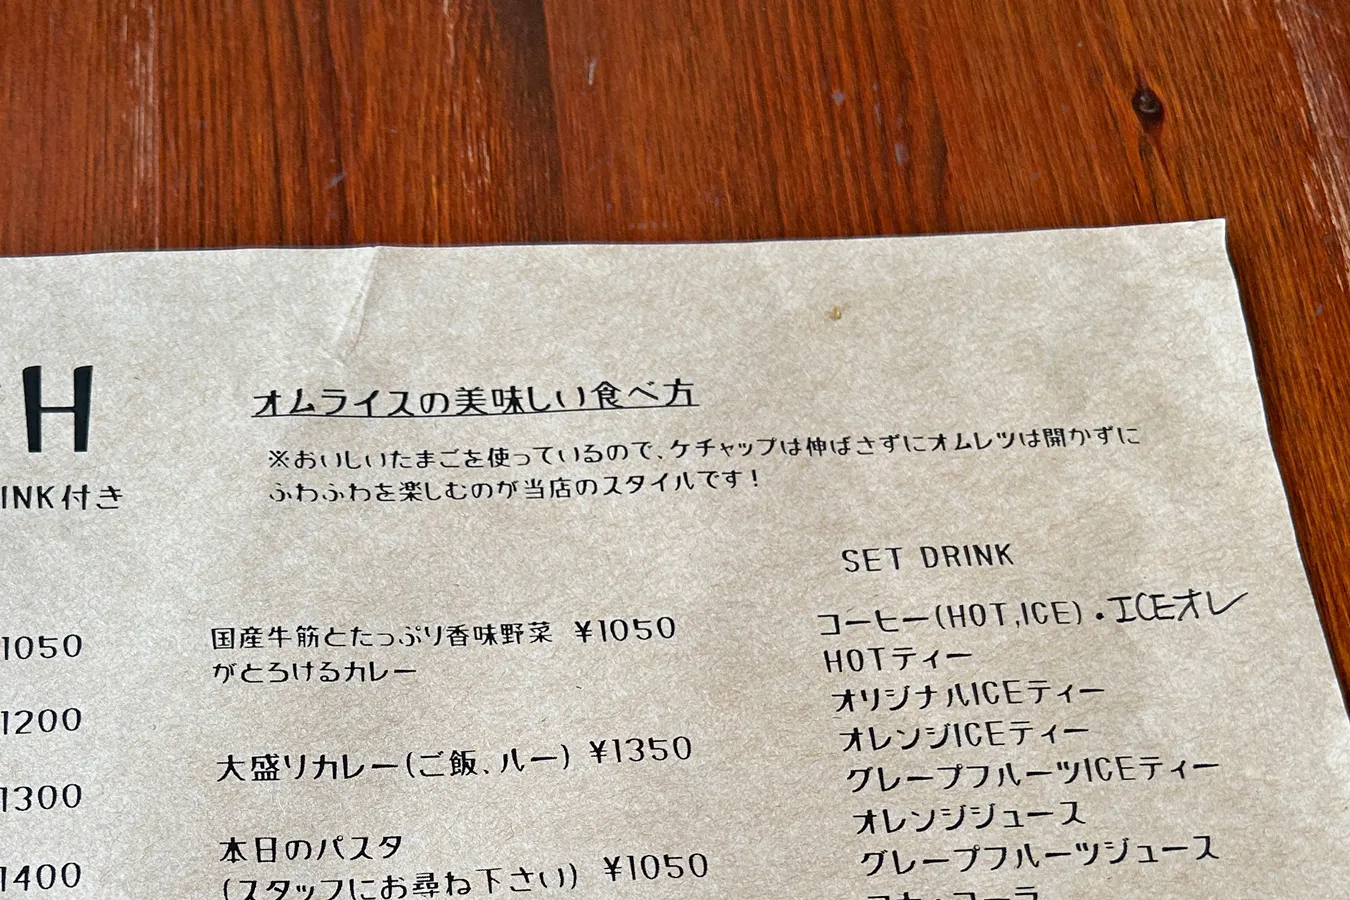 H
INK付き
1050
1200
1300
1400
オムライスの美味しい食べ方
※おいしいたまごを使っているので、ケチャップは伸ばさずにオムレツは開かずに
ふわふわを楽しむのが当店のスタイルです！
国産牛筋とたっぷり香味野菜 ¥1050
がとろけるカレー
大盛りカレー(ご飯、ルー) ¥1350
本日のパスタ
(スタッフにお尋ね下さい) ¥1050
SET DRINK
コーヒー(HOT,ICE)・ICEオレ
HOTティー
オリジナルICEティー
オレンジICEティー
グレープフルーツICEティー
オレンジジュース
グレープフルーツジュース